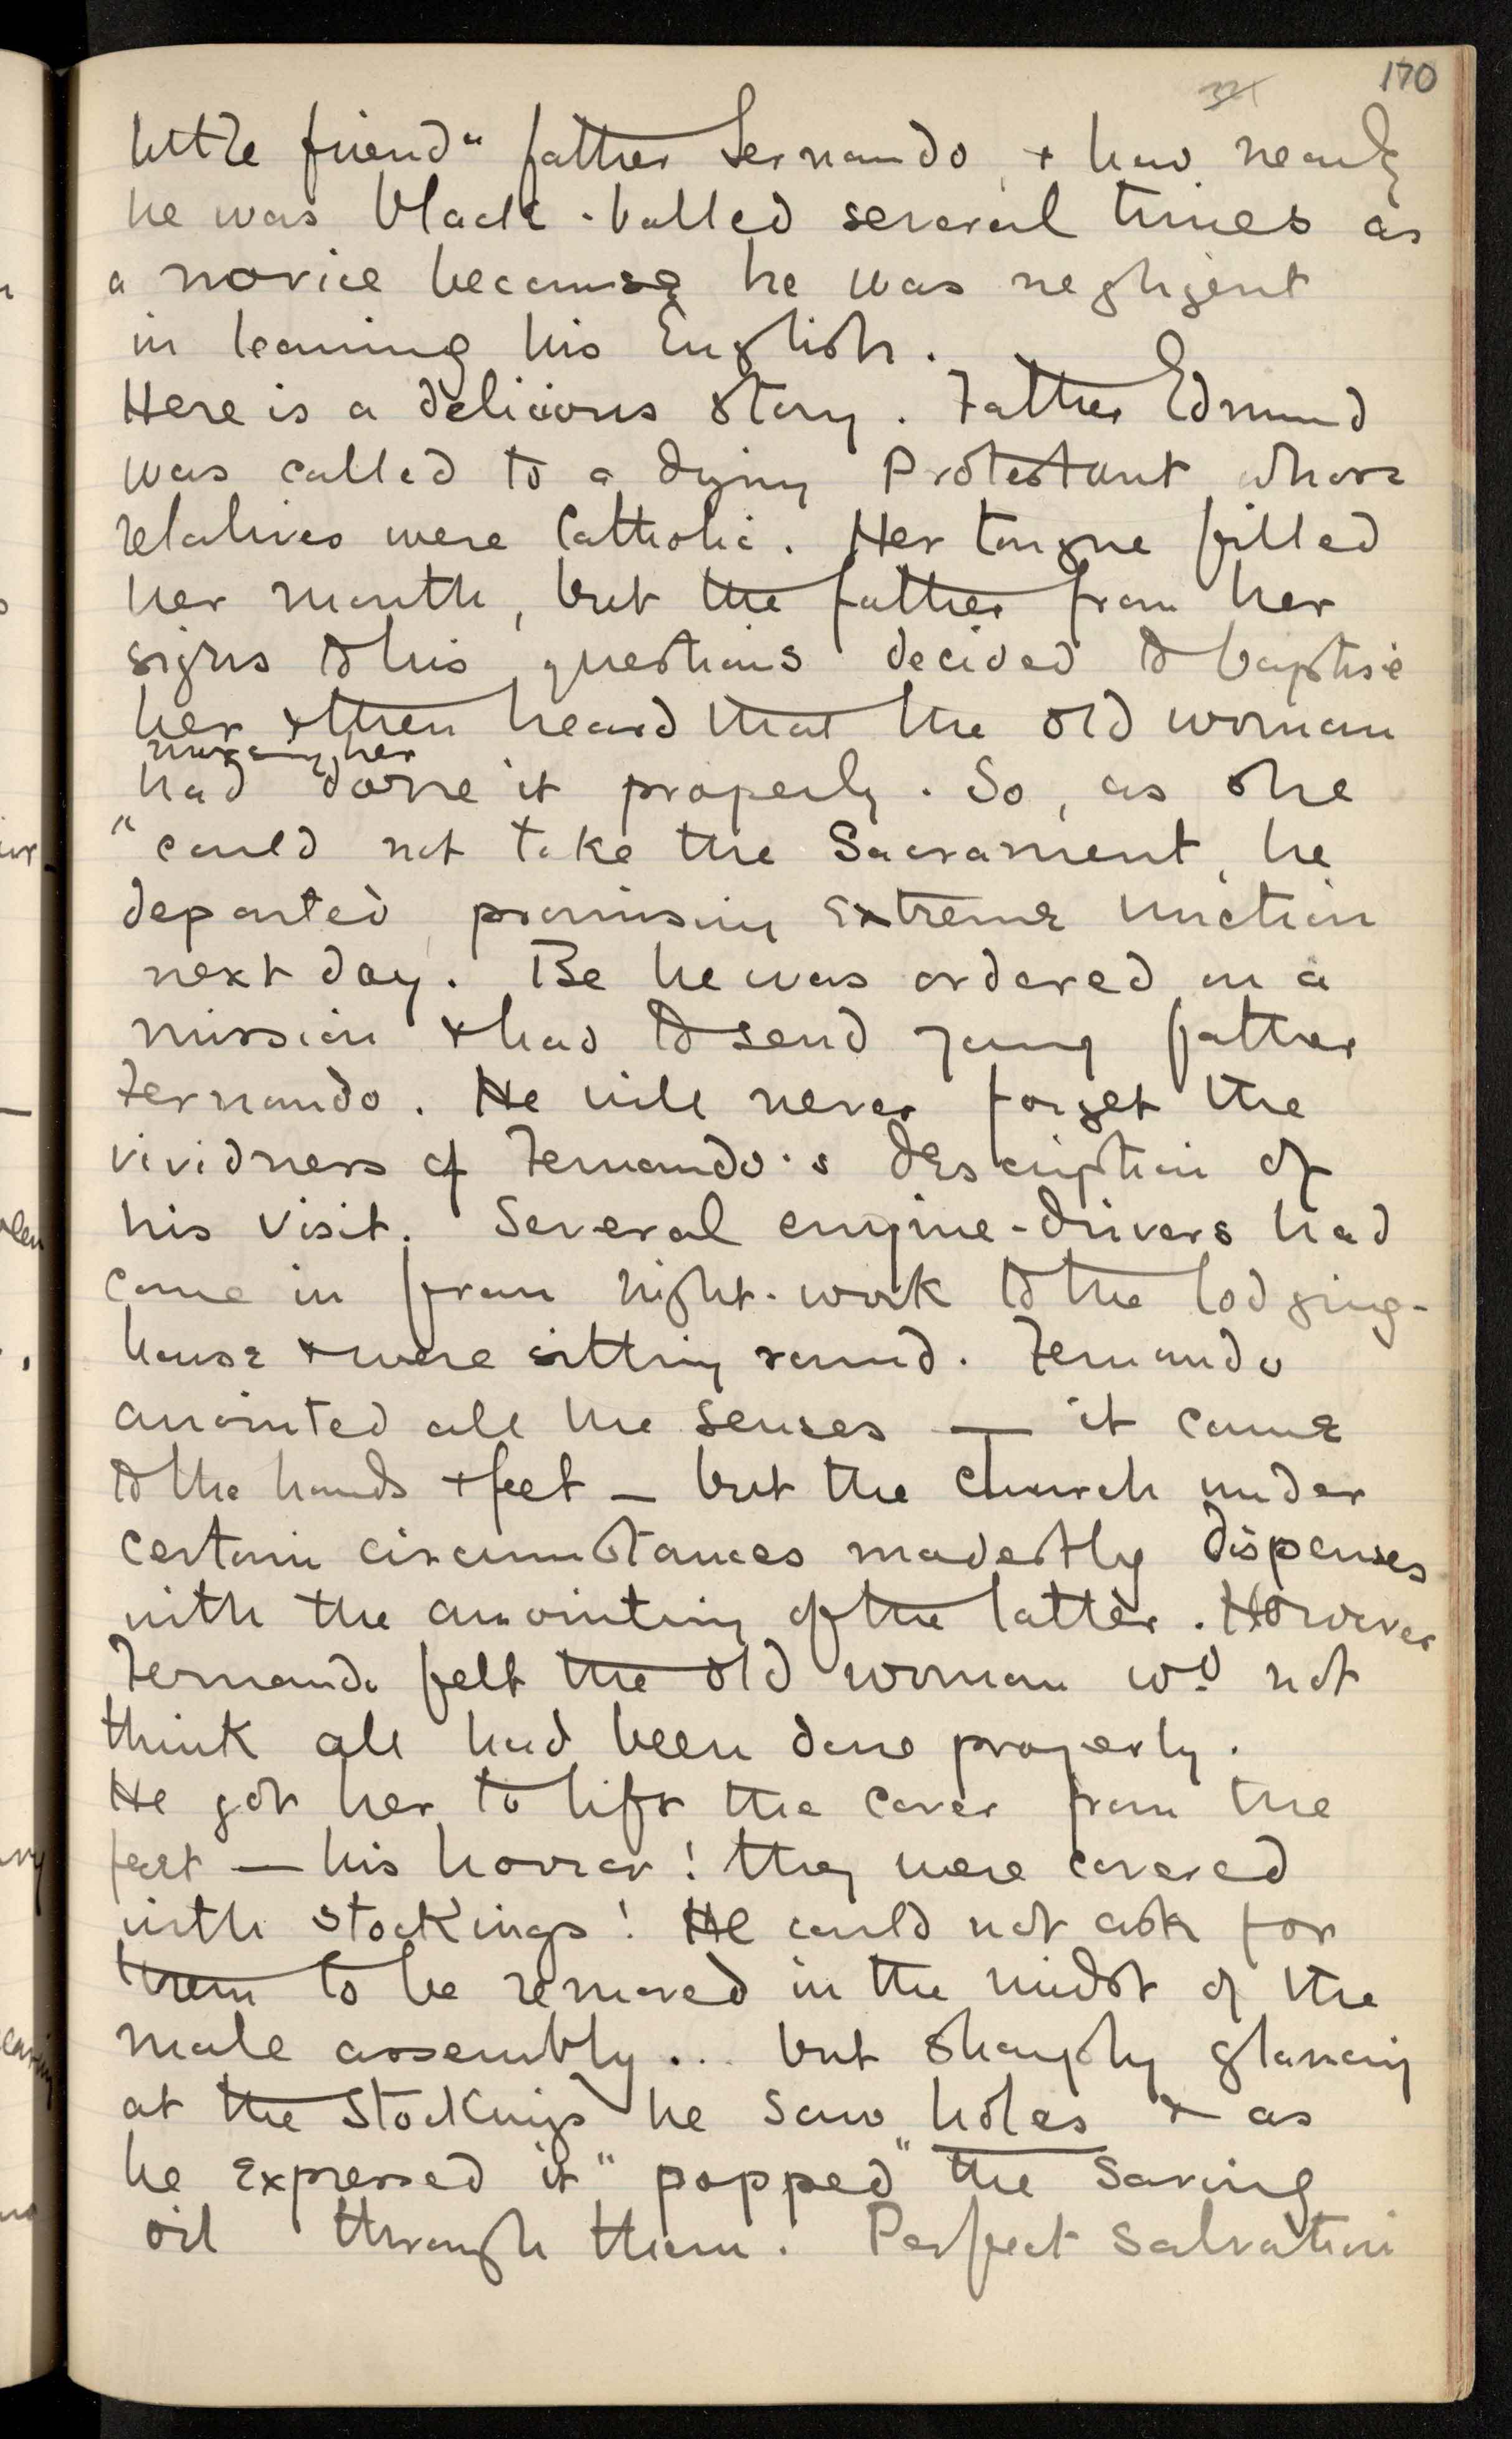 170
little friend" father Fernando, & how nearly
he was black-balled several times as
a novice because he was negligent
in learning his English.
Here is a delicious story. Father Edmund
was called to a dying Protestant whose
relatives were Catholic. Her tongue filled
her mouth, but the father from her
signs to his questions decided to baptise
her & then heard that the old woman
nursing her
had done it properly. So, as she
"could not take the Sacrament, he
departed, promising extreme unction
next day. Be he was ordered on a
mission & had to send young father
Fernando. He will never forget the
vividness of Fernando's description of
his visit. Several engine-drivers had
come in from night-work to the lodging-
house & were sitting round. Fernando
anointed all the senses — it came
to the hands & feet — but the Church under
certain circumstances modestly dispenses
with the anointing of the latter. However
Fernando felt the old woman wd not
think all had been done properly.
He got her to lift the cover from the
feet — his horror! they were covered
with stockings! He could not ask for
them to be removed in the midst of the
male assembly... but sharply glancing
at the stockings he saw holes & as
he expressed it "popped" the saving
oil through them. Perfect salvation